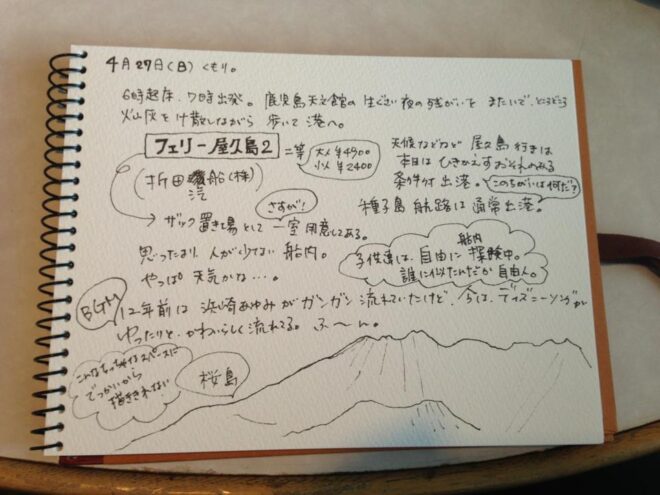 4月27日(日) くもり。
6時起床、7時出発。鹿児島天文館の 生ぐさい夜の残がいを またいで、ところどころ
火山灰をけ散しながら 歩いて 港へ。
フェリー屋久島2
二等
大人 ¥4900
小人 ¥2400
(折田汽船(株))
天候などなど 屋久島行きは
本日は ひきかえすおそれのある
条件付 出港。
このちがいは何だ?
種子島 航路は 通常出港。
さすが!
ザック置き場として 一室 用意してある。
思ったより 人が少ない 船内。
やっぱ 天気かな…。
船内
子供達は、自由に 探険中。
誰に似たんだか 自由人。
BGM
12年前は 浜崎あゆみが ガンガン 流れていたけど、今は、ディズニーソングが
ゆったりと、かわいらしく 流れてる。ふ〜ん。
こんなちっちゃなスペースに
でっかいから
描ききれない
桜島